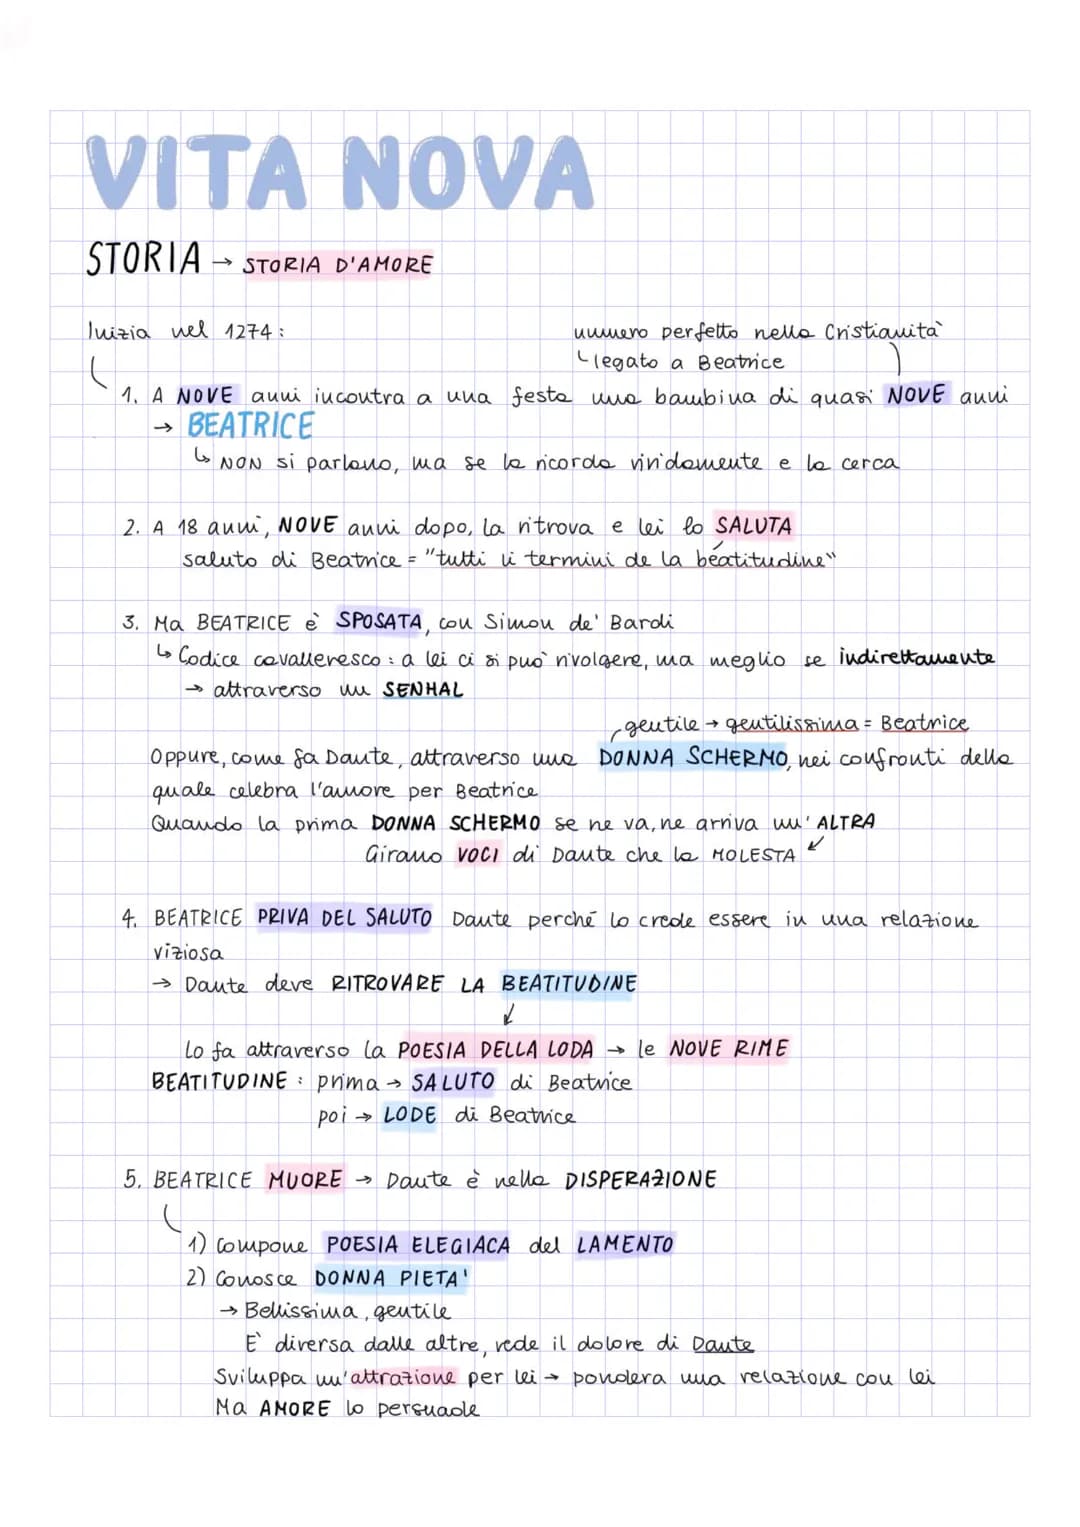 VITA NOVA
STORIA → STORIA D'AMORE
Inizia nel 1274:
numero perfetto nella Cristianità
↳ legato a Beatrice
1. A NOVE anni incontra a una festa una bambina di quasi NOVE anni
→ BEATRICE
↳ NON si parlano, ma se la ricorda vividamente e la cerca
2. A 18 anni, NOVE anni dopo, la ritrova e lei lo SALUTA
saluto di Beatrice = "tutti li termini de la beatitudine"
3. Ma BEATRICE è SPOSATA, con Simon de' Bardi
↳ Codice cavalleresco: a lei ci si può rivolgere, ma meglio se indirettamente
→ attraverso un SENHAL
gentile → gentilissima = Beatrice
Oppure, come fa Dante, attraverso una DONNA SCHERMO, nei confronti della
quale celebra l'amore per Beatrice
Quando la prima DONNA SCHERMO se ne va, ne arriva un'ALTRA
Girano VOCI di Dante che la MOLESTA
4. BEATRICE PRIVA DEL SALUTO Dante perché lo crede essere in una relazione
viziosa
→ Dante deve RITROVARE LA BEATITUDINE
Lo fa attraverso la POESIA DELLA LODA → le NOVE RIME
BEATITUDINE: prima → SALUTO di Beatrice
poi → LODE di Beatrice
5. BEATRICE MUORE → Dante è nella DISPERAZIONE
1) Compone POESIA ELEGIACA del LAMENTO
2) Conosce DONNA PIETA'
→ Bellissima, gentile
E' diversa dalle altre, vede il dolore di Dante
Sviluppa un'attrazione per lei → pondera una relazione con lei
Ma AMORE lo persuade